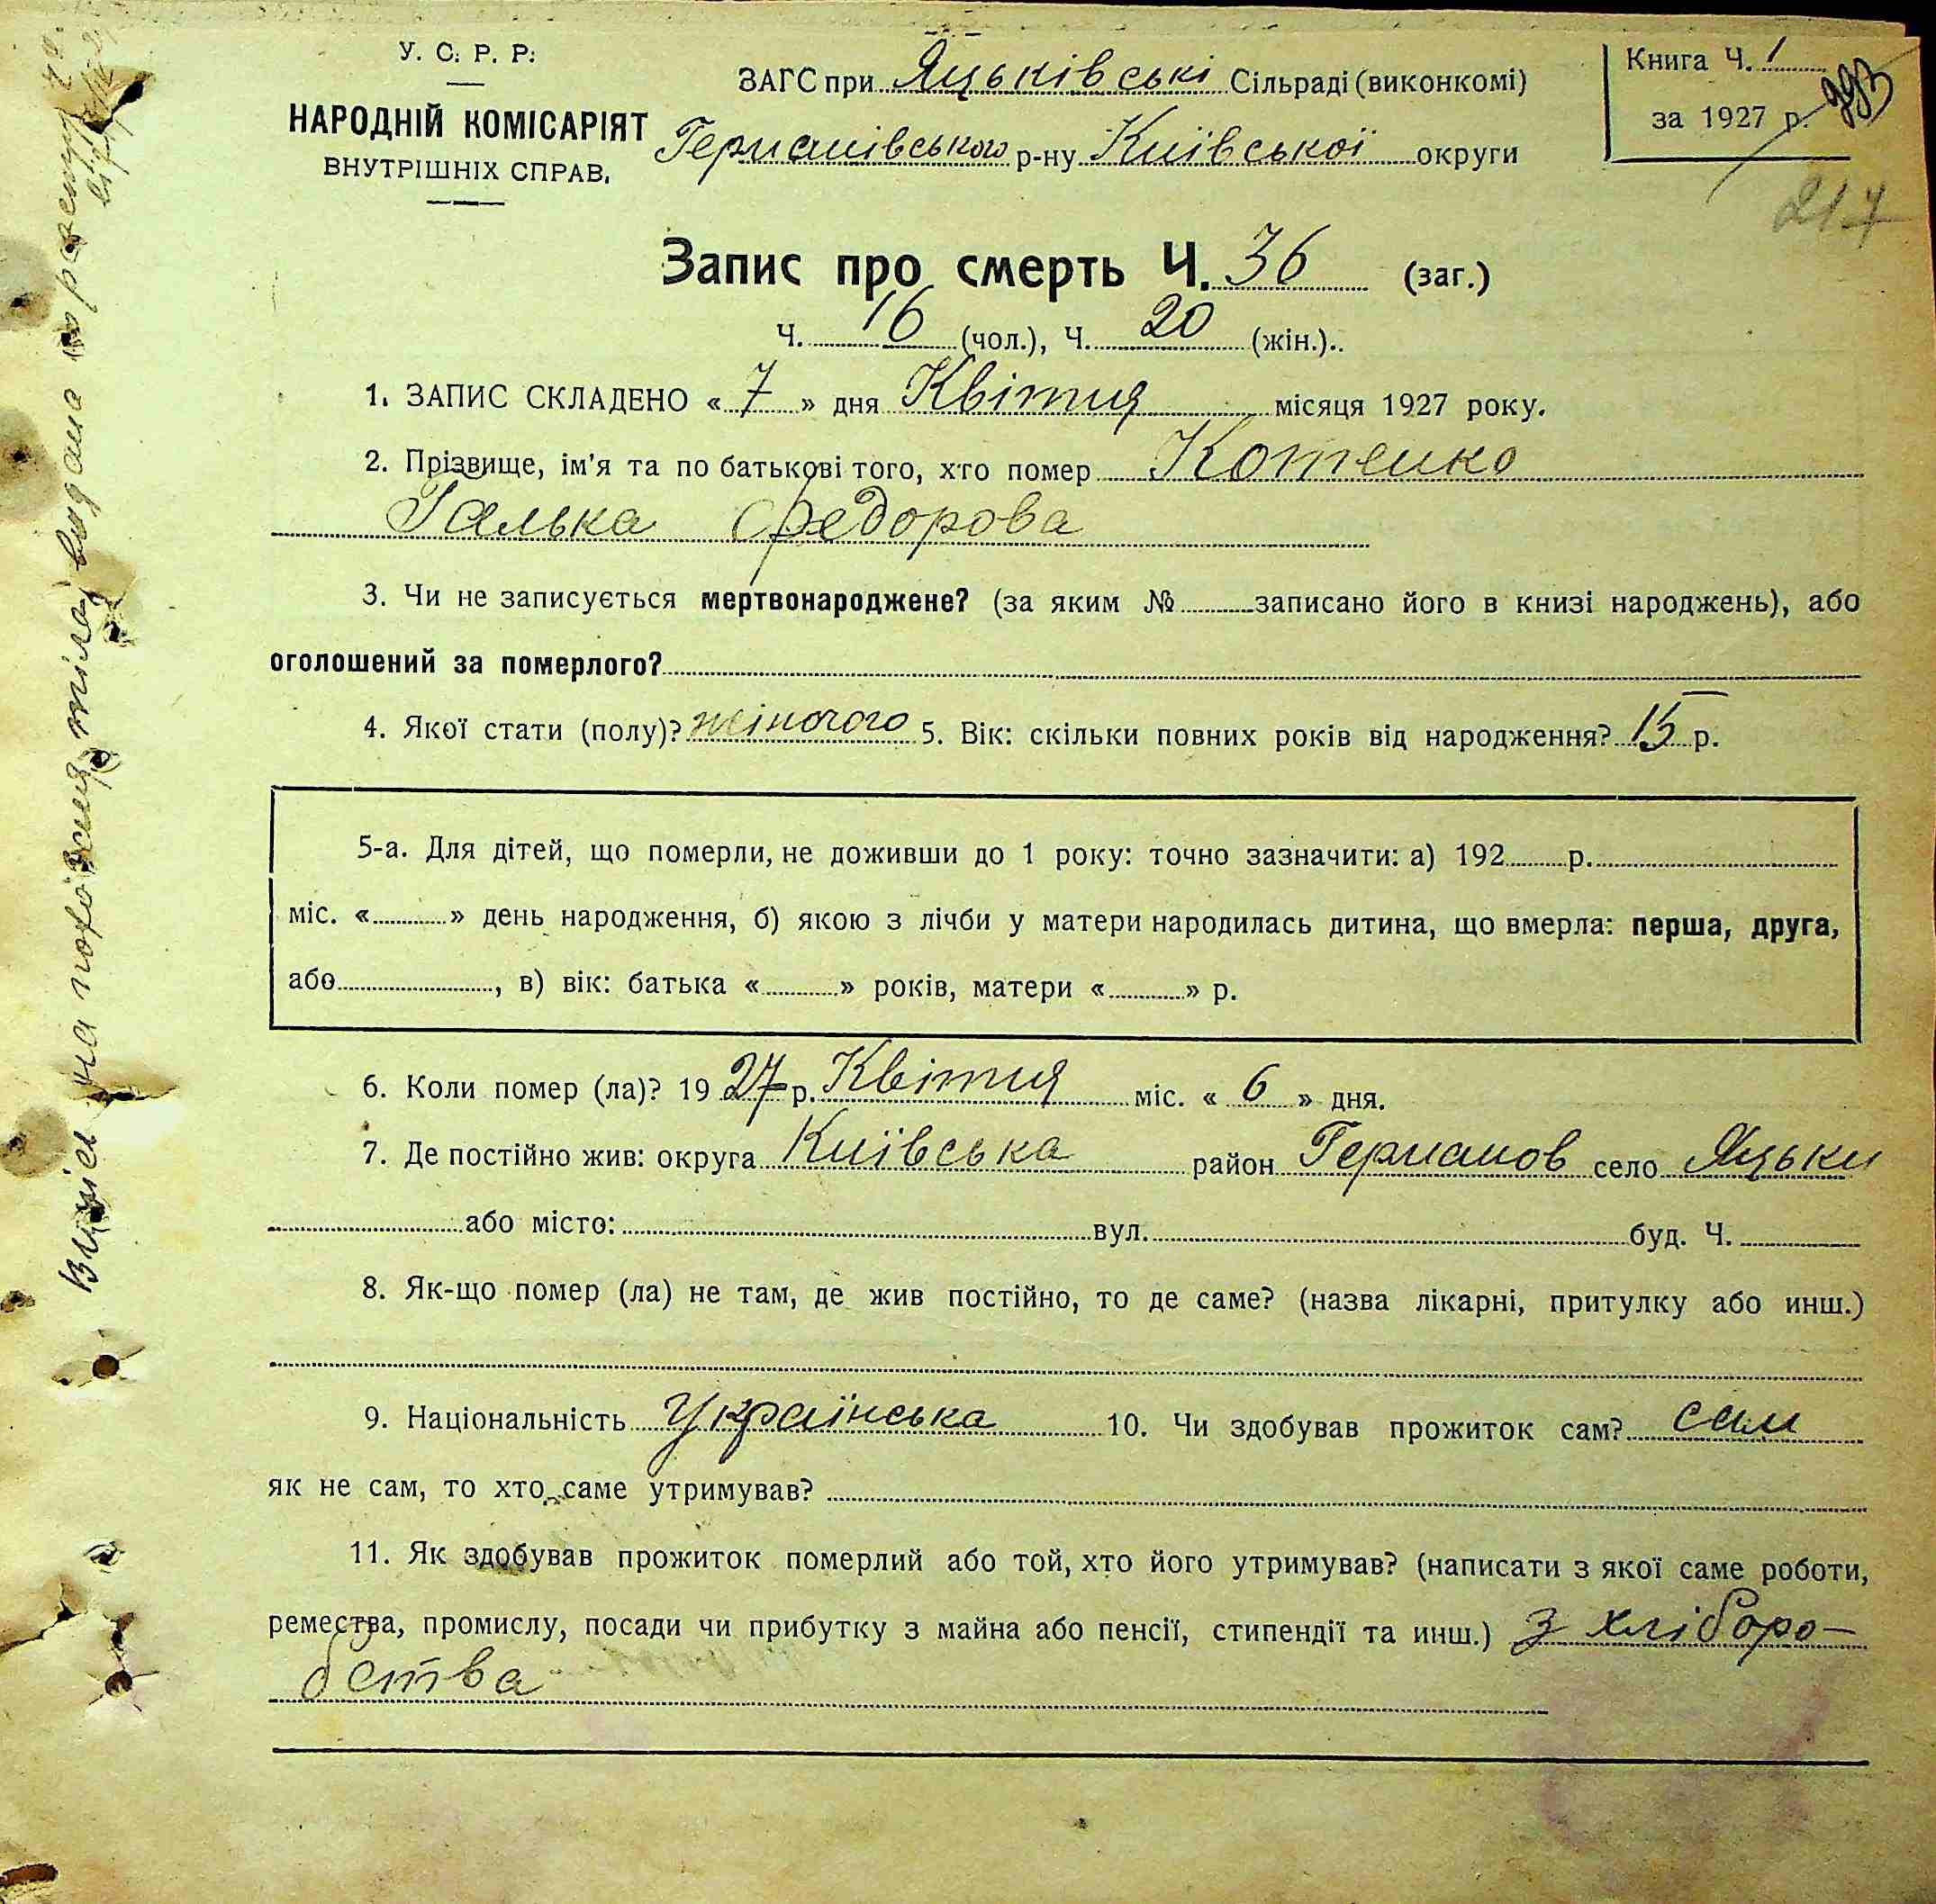 У. С. Р. Р.
НАРОДНІЙ КОМІСАРІЯТ
ВНУТРІШНІХ СПРАВ.
ЗАГС при Яцьківські Сільраді (виконкомі)
Германівського р-ну Київської округи
Книга Ч. 1
за 1927 р.
217
Запис про смерть Ч. 36 (заг.)
Ч. 16 (чол.), Ч. 20 (жін.)..
1. ЗАПИС СКЛАДЕНО « 7 » дня Квітня місяця 1927 року.
2. Прізвище, ім'я та по батькові того, хто помер Котенко
Галька Федорова
3. Чи не записується мертвонароджене? (за яким № записано його в книзі народжень), або
оголошений за померлого?
4. Якої стати (полу)? жіночого 5. Вік: скільки повних років від народження? 15 р.
5-а. Для дітей, що померли, не доживши до 1 року: точно зазначити: а) 192 р.
міс. « » день народження, б) якою з лічби у матери народилась дитина, що вмерла: перша, друга,
або , в) вік: батька « » років, матери « » р.
6. Коли помер (ла)? 19 27 р. Квітня міс. « 6 » дня.
7. Де постійно жив: округа Київська район Германов село Яцьки
або місто: вул. буд. Ч.
8. Як-що помер (ла) не там, де жив постійно, то де саме? (назва лікарні, притулку або инш.)
9. Національність Українська 10. Чи здобував прожиток сам? сам
як не сам, то хто саме утримував?
11. Як здобував прожиток померлий або той, хто його утримував? (написати з якої саме роботи,
ремества, промислу, посади чи прибутку з майна або пенсії, стипендії та инш.) З хліборо-
бства
на похованя тіла видана